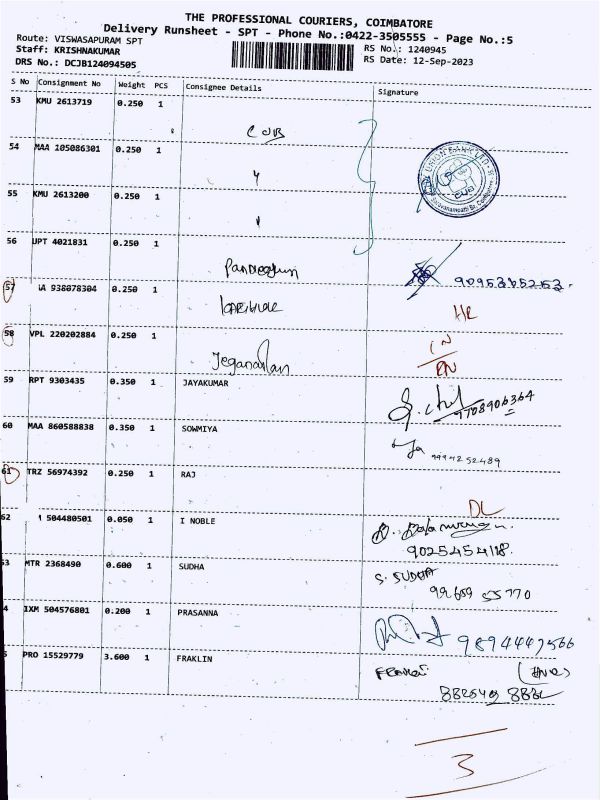 THE PROFESSIONAL COURIERS, COIMBATORE
Delivery Runsheet - SPT - Phone No.:0422-3505555 - Page No.:5
Route: VISWASAPURAM SPT
RS No.: 1240945
Staff: KRISHNAKUMAR
RS Date: 12-Sep-2023
DRS No.: DCJB124094505
S No Consignment No Weight PCS Consignee Details Signature
53 KMU 2613719 0.250 1
CUB
54 MAA 105086301 0.250 1
55 KMU 2613200 0.250 1
56 UPT 4021831 0.250 1
57 938078304 0.250 1
58 VPL 220202884 0.250 1
IN
59 RPT 9303435 0.350 1 JAYAKUMAR
60 MAA 860588838 0.350 1 SOWMIYA
61 TRZ 56974392 0.250 1 RAJ
DL
62 504480501 0.050 1 I NOBLE
9025454118.
3 MTR 2368490 0.600 1 SUDHA
S. SUDHA
99659 55770
4 IXM 504576801 0.200 1 PRASANNA
9894447566
PRO 15529779 3.600 1 FRAKLIN
3